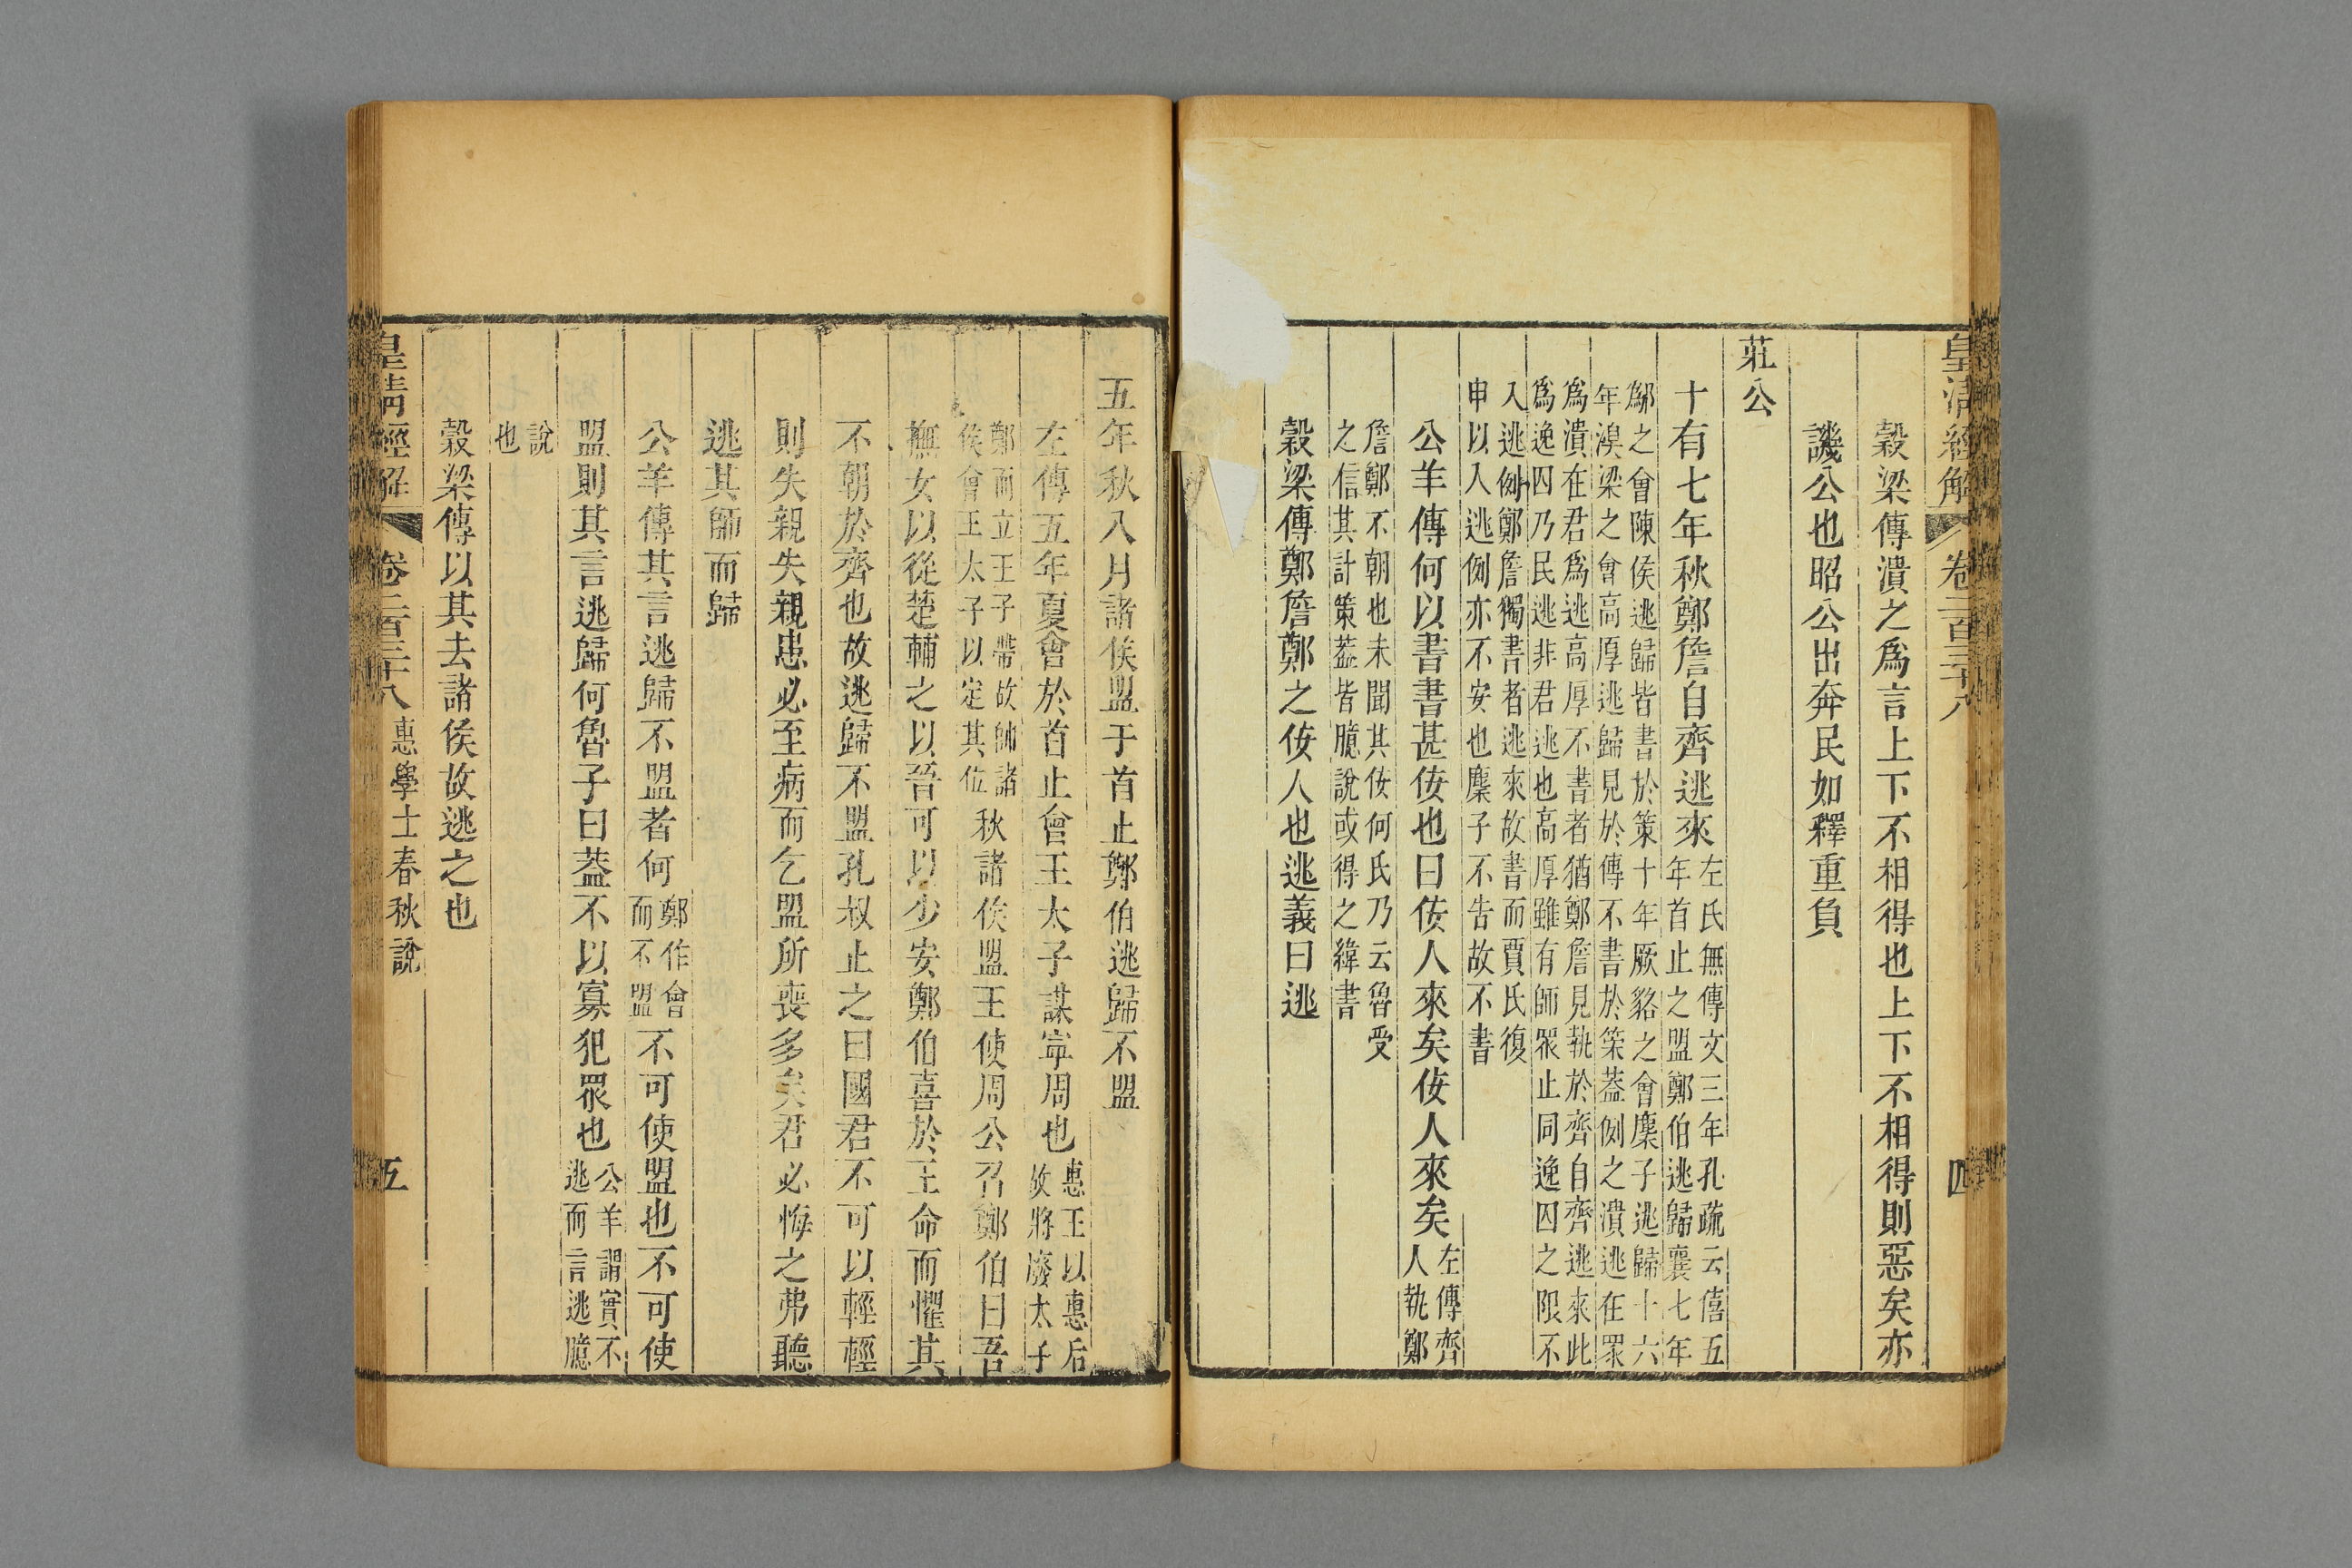 皇清經解 卷二百三十八 四
穀梁傳潰之爲言上下不相得也上下不相得則惡矣亦
譏公也昭公出奔民如釋重負
莊公
十有七年秋鄭詹自齊逃來左氏無傳文三年孔疏云僖五年首止之盟鄭伯逃歸襄七年
鄬之會陳侯逃歸皆書於策十年厥貉之會麇子逃歸十六
年溴梁之會高厚逃歸見於傳不書於策葢例之潰逃在眾
爲潰在君爲逃高厚不書者猶鄭詹見執於齊自齊逃來此
爲逸囚乃民逃非君逃也高厚雖有師眾止同逸囚之限不
入逃例鄭詹獨書者逃來故書而賈氏復
申以入逃例亦不安也麇子不告故不書
公羊傳何以書書甚佞也曰佞人來矣佞人來矣左傳齊人執鄭
詹鄭不朝也未聞其佞何氏乃云魯受
之信其計策葢皆臆說或得之緯書
穀梁傳鄭詹鄭之佞人也逃義曰逃
五年秋八月諸侯盟于首止鄭伯逃歸不盟
左傳五年夏會於首止會王太子謀寧周也惠王以惠后故將廢太子
鄭而立王子帶故帥諸侯會王太子以定其位秋諸侯盟王使周公召鄭伯曰吾
撫女以從楚輔之以晉可以少安鄭伯喜於王命而懼其
不朝於齊也故逃歸不盟孔叔止之曰國君不可以輕輕
則失親失親患必至病而乞盟所喪多矣君必悔之弗聽
逃其師而歸
公羊傳其言逃歸不盟者何鄭作會而不盟不可使盟也不可使
盟則其言逃歸何魯子曰葢不以寡犯眾也公羊謂實不逃而言逃臆
說也
穀梁傳以其去諸侯故逃之也
皇清經解 卷二百三十八 惠學士春秋說 五